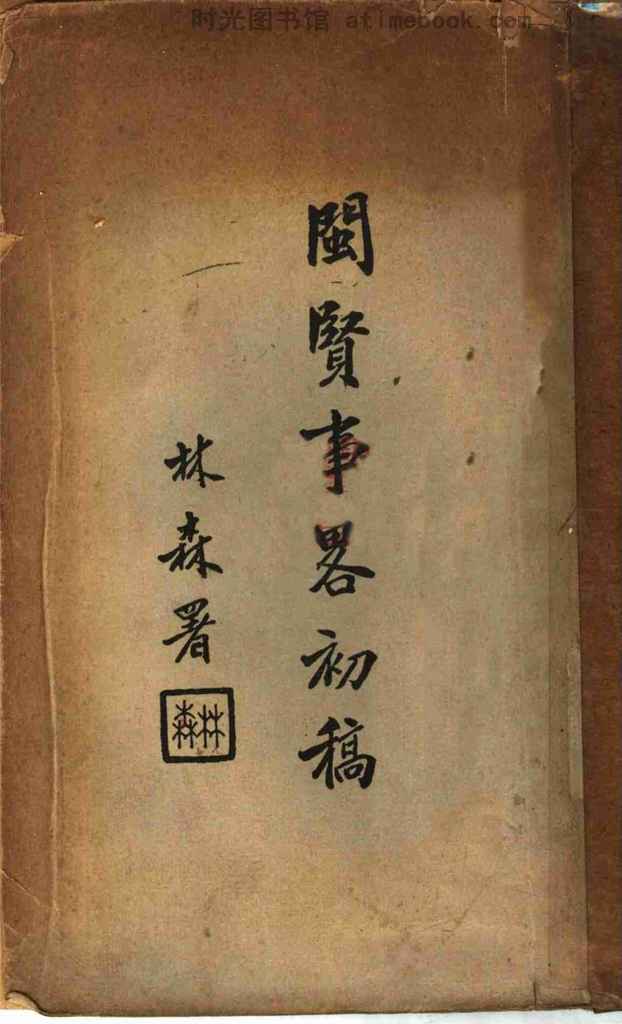 时光图书馆 atimebook.com
閩賢事畧初稿
林森署
林森